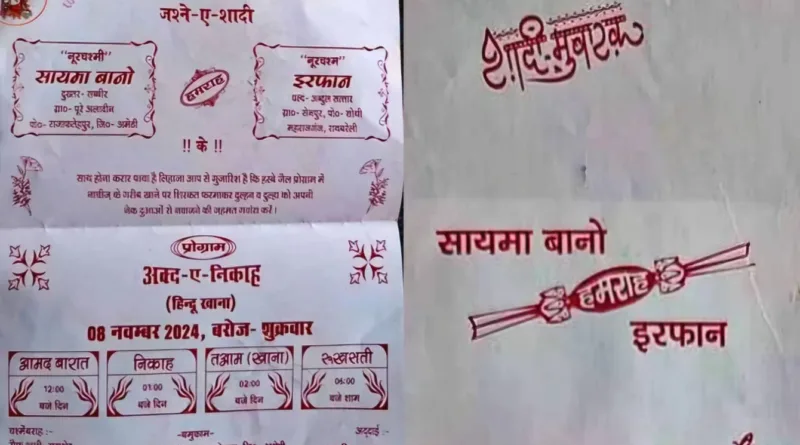 जश्ने-ए-शादी
"नूरचश्मी"
सायमा बानो
दुख्तर- सब्बीर
ग्रा०- पूरे अलादीन
पो०- राजाफतेहपुर, जि०- अमेठी
हमराह
"नूरचश्म"
इरफान
वल्द- अब्दुल सत्तार
ग्रा०- सेनपुर, पो०- सोथी
महराजगंज, रायबरेली
!! के !!
साथ होना करार पाया है लिहाजा आप से गुजारिश है कि हस्बे जैल प्रोग्राम में
नाचीज़ के गरीब खाने पर शिरकत फरमाकर दुल्हन व दुल्हा को अपनी
नेक दुआओं से नवाजने की जहमत गवांरा करें।
प्रोग्राम
अक्द-ए-निकाह
(हिन्दू खाना)
08 नवम्बर 2024, बरोज- शुक्रवार
आमद बारात
12:00
बजे दिन
निकाह
01:00
बजे दिन
तआम (खाना)
02:00
बजे दिन
रूखसती
05:00
बजे शाम
चश्मेबराह :-
-बमुकाम-
अद्दाई :-
शादी मुबारक
सायमा बानो
हमराह
इरफान